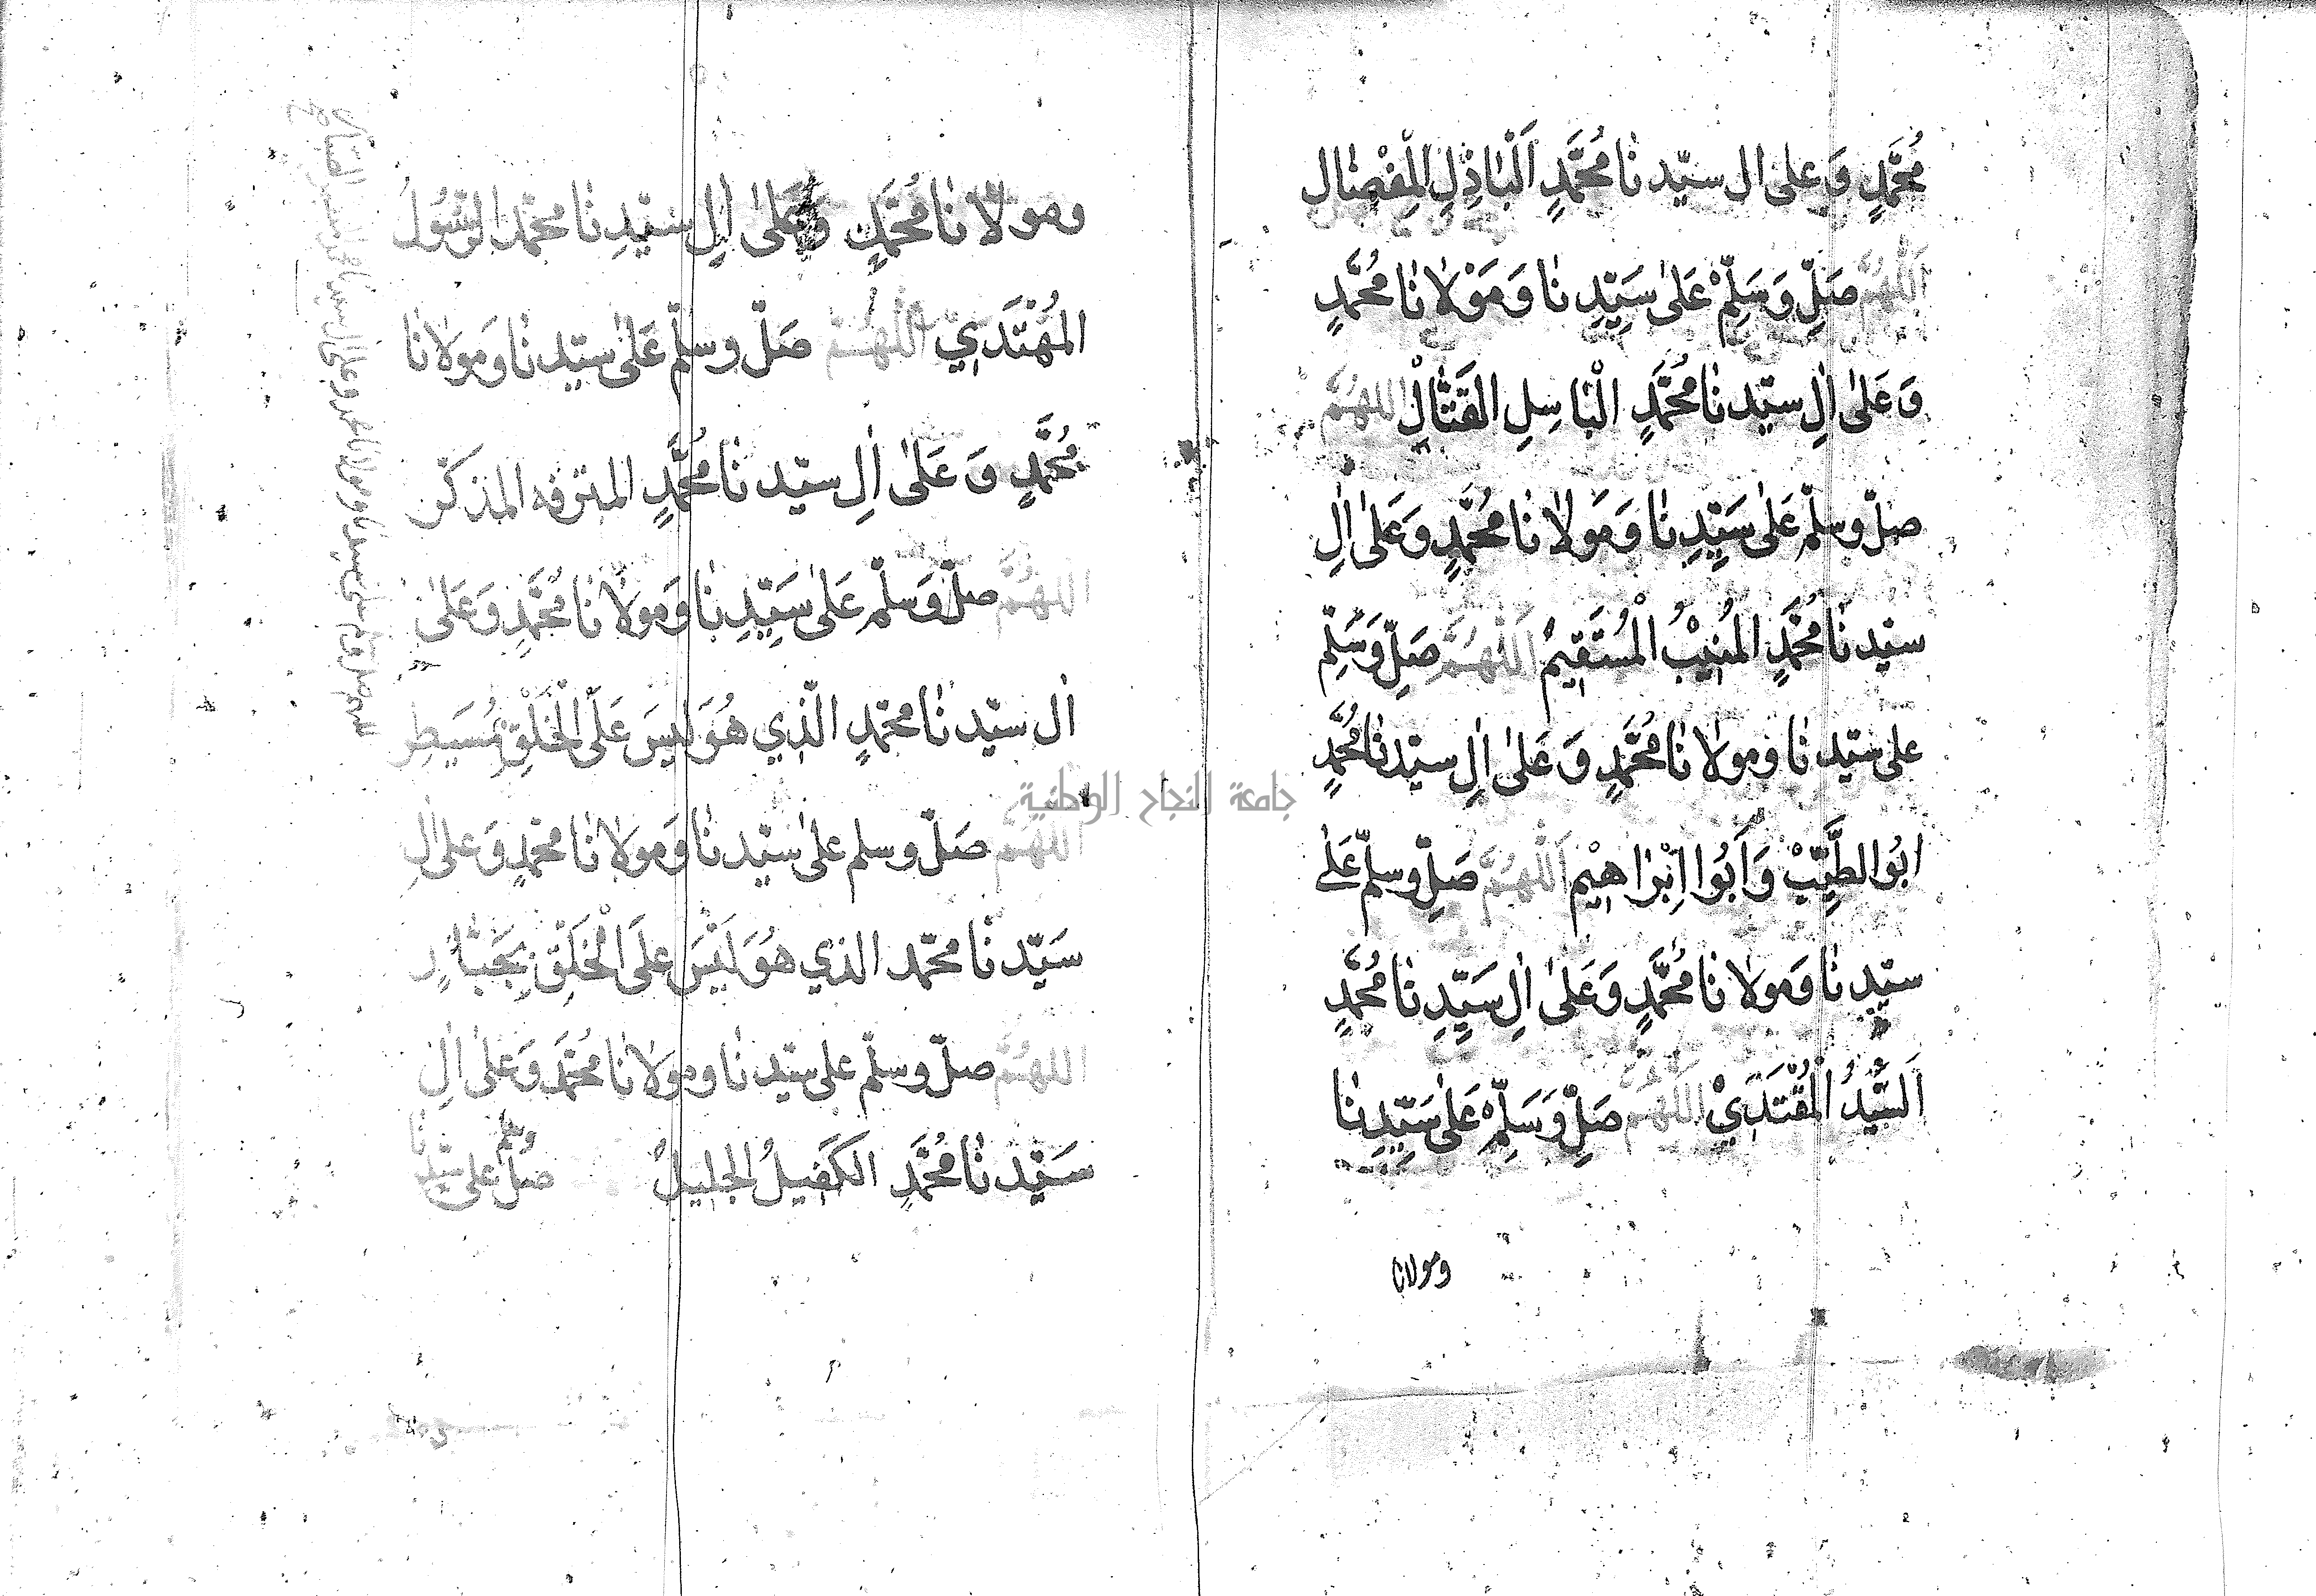 مُحَمَّدٍ وَعلى ال سيّدنا مُحَمَّدٍ اَلْبَاذِلِ الْمِفْضال
اَللّهُمَّ صَلِّ وَسَلِّمْ عَلى سَيِّدِنا وَمَوْلانا مُحَمَّدٍ
وَعَلىٰ اٰلِ سيّدنا مُحَمَّدٍ الْبَاسِلِ القَتَّالْ اللهُمَّ
صلّ وسلّم عَلىٰ سَيِّدِنا وَمَولانا مُحَمَّدٍ وَعَلىٰ اٰلِ
سيّدنا مُحَمَّدٍ المُنِيْبُ الْمُسْتَقِيمُ اَللّهُمَّ صَلِّ وَسَلِّمْ
على سيّدنا ومولانا مُحَمَّدٍ وَعَلىٰ اٰلِ سيّدنا مُحَمَّدٍ
ابُوالطَّيِّبْ وَاَبُوا اِبْرَاهِيْم اَللّهُمَّ صَلِّ وسلّم عَلىٰ
سيّدِنا وَمَولانا مُحَمَّدٍ وَعَلىٰ اٰلِ سَيِّدِنا مُحَمَّدٍ
اَلسَّيِّدُ الْمُقْتَدَيْ اللّهُمَّ صَلِّ وَسَلِّمْ عَلىٰ سَيِّدِنا
ومولانا
ومولانا مُحَمَّدٍ وَعَلىٰ اٰلِ سَيّدِنا محمّد الرَّسُولُ
المُهْتَدَيِ اللّهُمَّ صَلّ وسلّم عَلىٰ سيّدنا وَمَولانا
مُحَمَّدٍ وَعَلىٰ اٰلِ سيّدنا مُحَمَّدٍ المذكّر
اللهُمَّ صلّ وَسَلّم عَلىٰ سَيِّدِنا وَمولانا مُحَمَّدٍ وَعَلىٰ
اٰل سيّدنا محمّدٍ الّذي هُوَ لَيسَ عَلَى الْخَلْقِ بمُسَيطِرِ
اللهُمَّ صَلّ وسلم علىٰ سيّدنا وَمَولانا محمّدٍ وَعلىٰ اٰلِ
سَيّدنا محمّد الذي هُوَ لَيْسَ علَى الْخَلْقِ بِجَبَّارٍ
اللهُمَّ صلّ وسلّم على سيّدنا ومَولانا مُحَمَّد وَعَلىٰ اٰلِ
سَيّدنا مُحَمَّدٍ الكَفِيلُ الجليلُ صلّ وسلم على سيّدنا
جامعة النجاح الوطنية